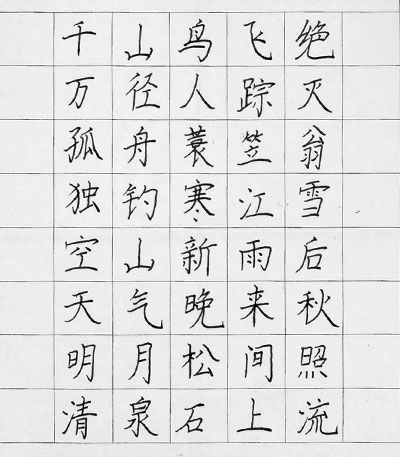 千山鸟飞绝
万径人踪灭
孤舟蓑笠翁
独钓寒江雪
空山新雨后
天气晚来秋
明月松间照
清泉石上流